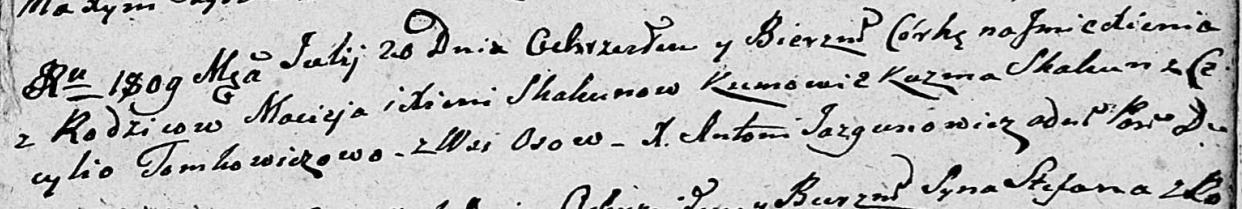 Ru 1809 Mca Julij 20 Dnia Ochrzciłem y Bierzm Córkę na Jmie Xienia
z Rodzicow Macieja i Xieni Skakunow Kumowie Kuzma Skakun z Ce
cylio Tomkowiczowo - z Wsi Osow - X. Antoni Jazgunowicz
y Bierzm Syna Stefana z Ro